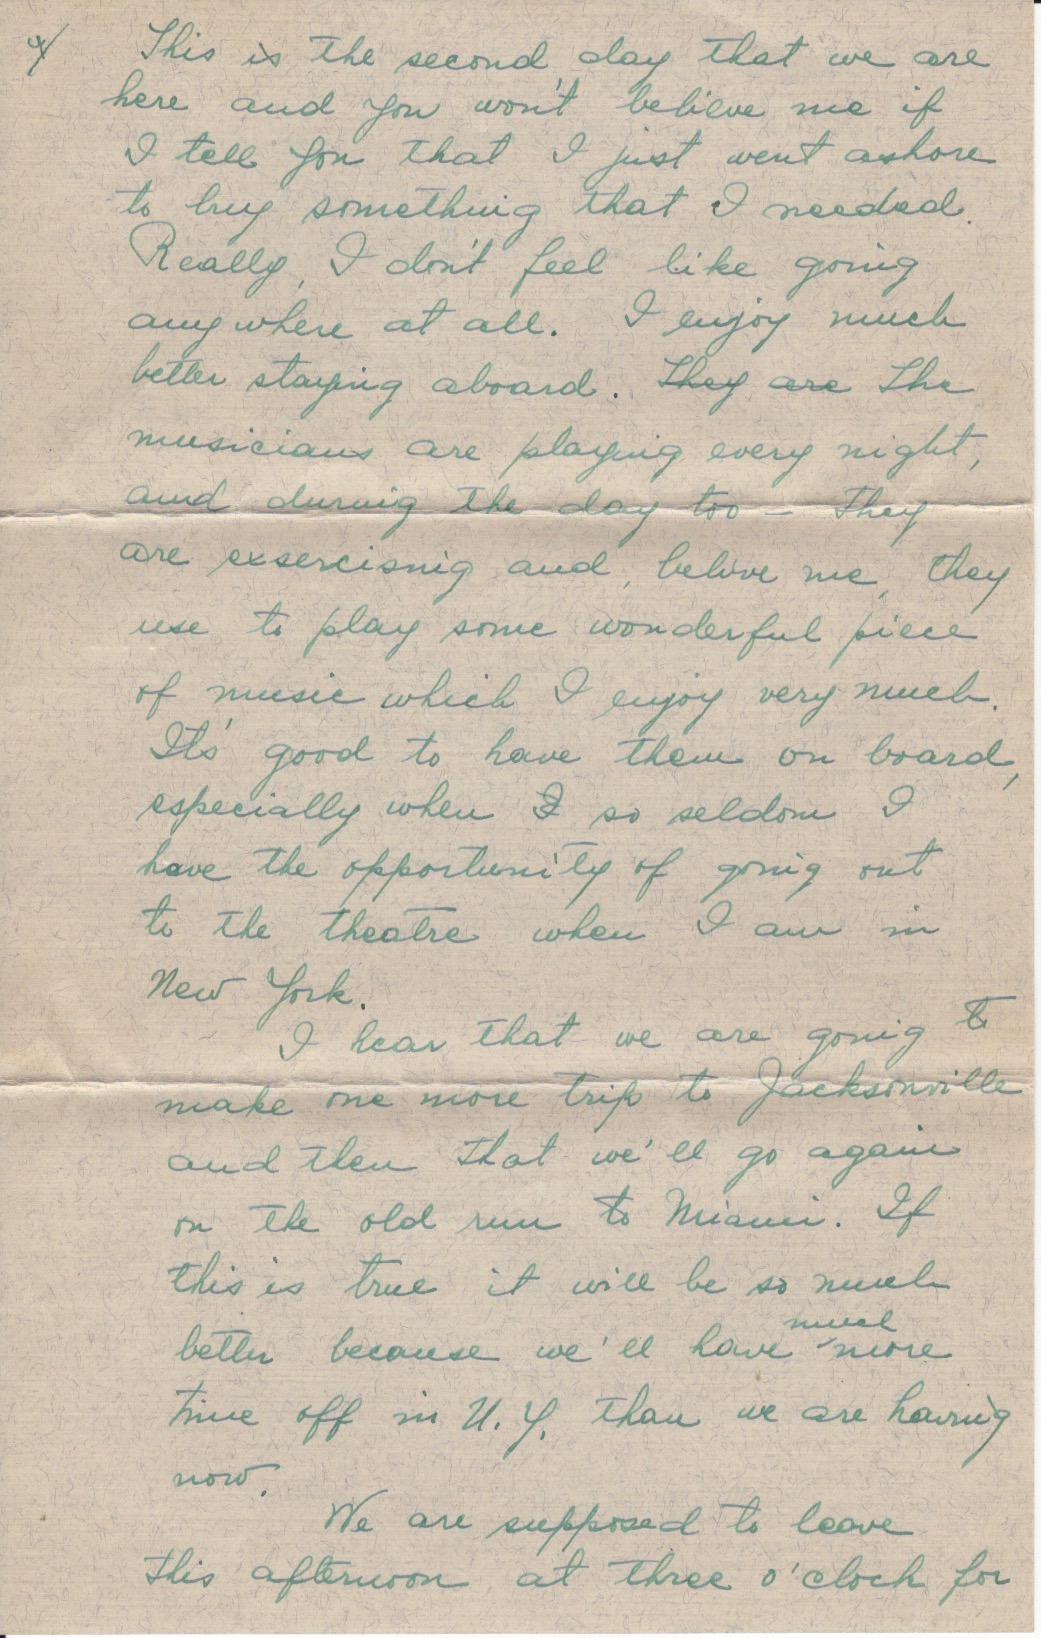 4/ This is the second day that we are
here and you won't believe me if
I tell you that I just went ashore
to buy something that I needed.
Really, I don't feel like going
anywhere at all. I enjoy much
better staying aboard. ~~They are~~ The
musicians are playing every night,
and during the day too – they
are exsercisnig and, belive me, they
use to play some wonderful piece
of music which I enjoy very much.
It's good to have them on board,
especially when I so seldom I
have the opportunity of going out
to the theatre when I am in
New York.
I hear that we are going to
make one more trip to Jacksonville
and then that we'll go again
on the old run to Miami. If
this is true it will be so much
much
better because we'll have more
time off in N.Y. than we are having
now.
We are supposed to leave
this afternoon at three o'clock for